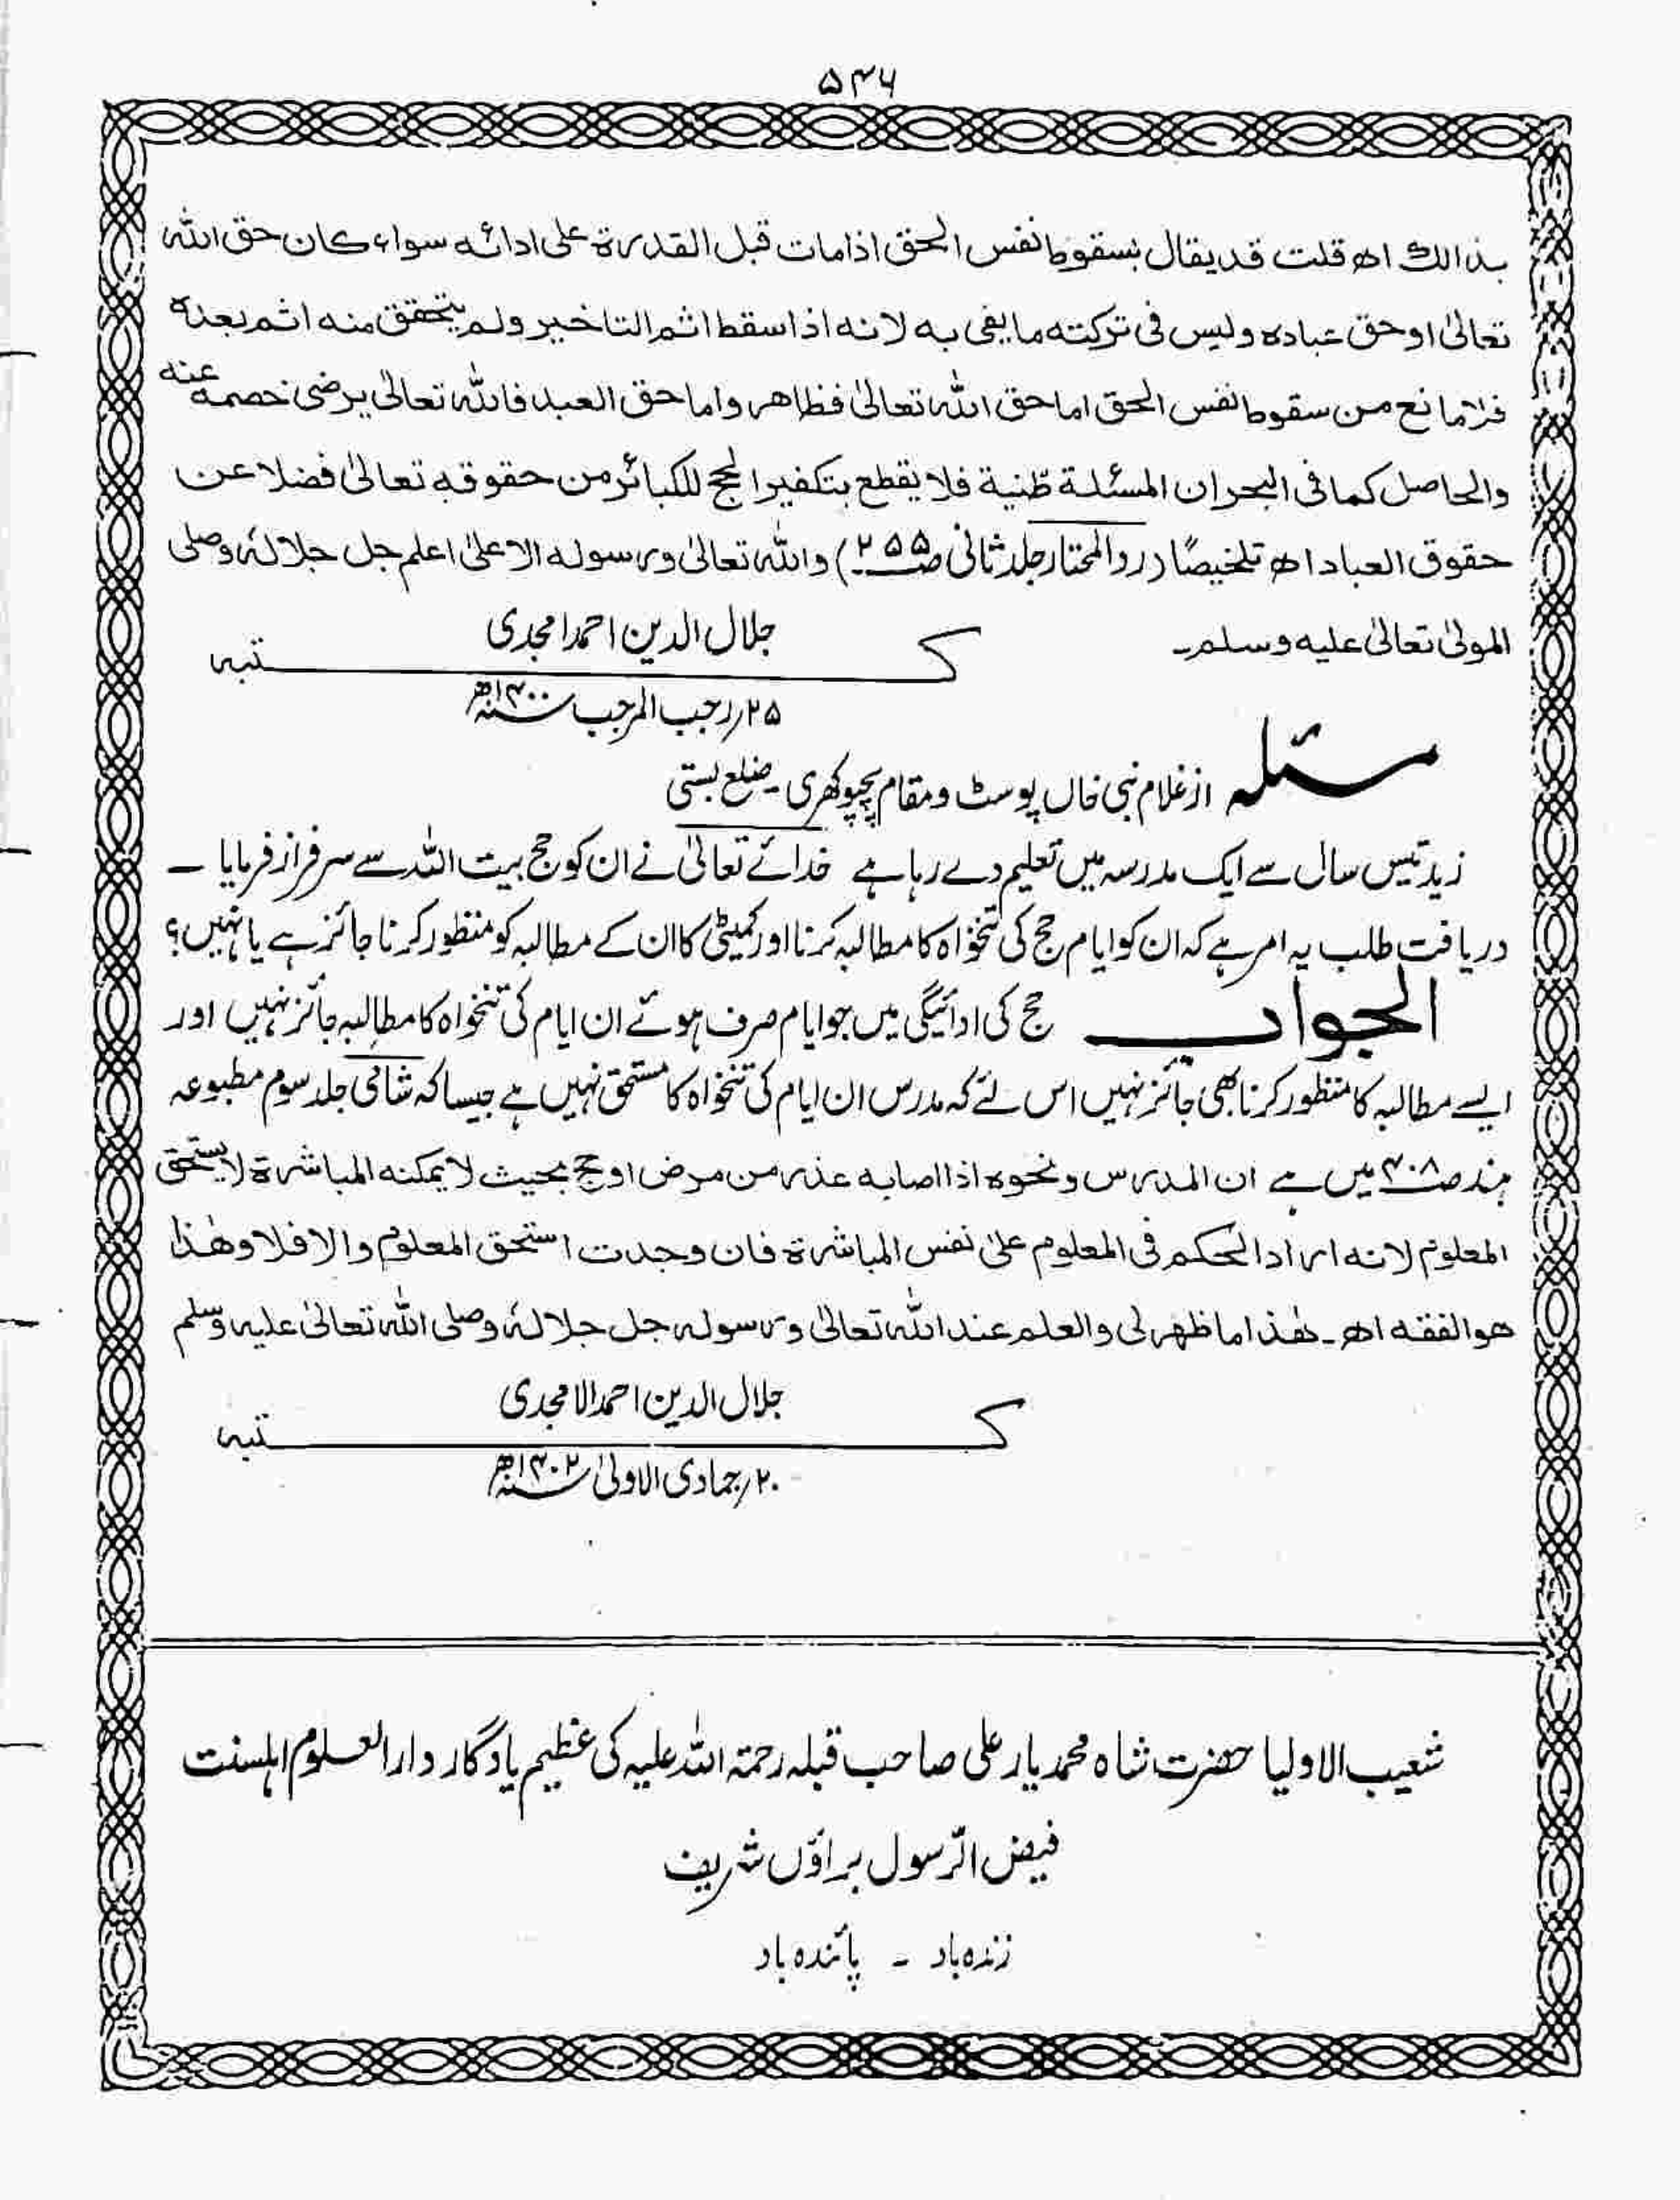 ۵۴۶
بذالك اھ قلت قد يقال بسقوط نفس الحق اذا مات قبل القدرة على ادائه سواء كان حق الله
تعالىٰ او حق عباده وليس فى تركته ما يفى به لانه اذا سقط اثم التاخير ولم يتحقق منه اثم بعده
فلا مانع من سقوط نفس الحق اما حق الله تعالىٰ فظاهر واما حق العبد فالله تعالىٰ يرضى خصمه عنه
والحاصل كما فى البحر ان المسئلة ظنية فلا يقطع بتكفير الحج للكبائر من حقوقه تعالىٰ فضلا عن
حقوق العباد اھ تلخيصًا (رد المحتار جلد ثانی ص۲۵۵) والله تعالىٰ ورسوله الاعلىٰ اعلم جل جلالهٗ وصلى
المولىٰ تعالىٰ عليه وسلم۔
جلال الدین احمد امجدی
کتبہ
۲۵؍رجب المرجب سنہ۱۴۰۰ھ
مسئلہ از غلام نبی خاں پوسٹ و مقام پچپوکھری ۔ ضلع بستی
زید تیس سال سے ایک مدرسہ میں تعلیم دے رہا ہے خدائے تعالیٰ نے ان کو حج بیت اللہ سے سرفراز فرمایا ۔
دریافت طلب یہ امر ہے کہ ان کو ایام حج کی تنخواہ کا مطالبہ کرنا اور کمیٹی کا ان کے مطالبہ کو منظور کرنا جائز ہے یا نہیں؟
الجواب حج کی ادائیگی میں جو ایام صرف ہوئے ان ایام کی تنخواہ کا مطالبہ جائز نہیں اور
ایسے مطالبہ کا منظور کرنا بھی جائز نہیں اس لئے کہ مدرس ان ایام کی تنخواہ کا مستحق نہیں ہے جیسا کہ شامی جلد سوم مطبوعہ
ہند ص۴۰۸ میں ہے ان المدرس ونحوه اذا اصابه عذر من مرض او حج بحيث لا يمكنه المباشرة لا يستحق
المعلوم لانه اراد الحكم فى المعلوم علىٰ نفس المباشرة فان وجدت استحق المعلوم والا فلا وهٰذا
هو الفقه اھ۔ هٰذا ما ظهر لى والعلم عند الله تعالىٰ ورسوله جل جلالهٗ وصلى الله تعالىٰ عليه وسلم
جلال الدین احمد الامجدی
کتبہ
۲۰؍جمادی الاولیٰ سنہ۱۴۰۲ھ
شعیب الاولیا حضرت شاہ محمد یار علی صاحب قبلہ رحمۃ اللہ علیہ کی عظیم یادگار دارالعلوم اہلسنت
فیض الرّسول براؤں شریف
زندہ باد ۔ پائندہ باد